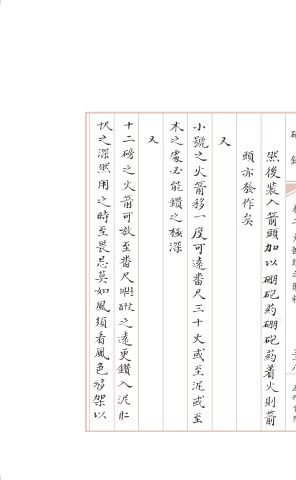 然後裝入箭頭加以硼砲葯硼砲葯着火則箭
頭亦發作矣
又
小號之火箭移一度可遠畨尺三十丈或至泥或至
木之處必能鑽之極深
又
十二磅之火箭可放至畨尺之遠更鑽入泥
之深然用之時至畏忌莫如風須看風色移架以